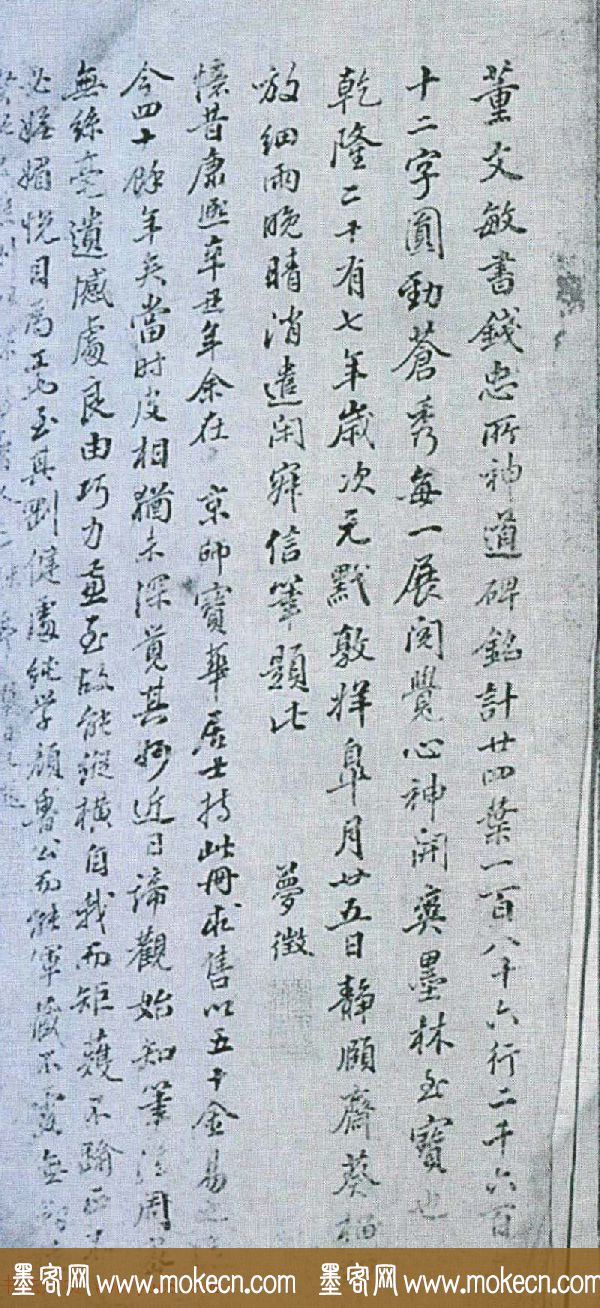 董文敏書錢忠所神道碑銘計廿四葉一百八十六行二千六百
十二字圓勁蒼秀每一展閱覺心神開爽墨林至寶也
乾隆二十有七年歲次元黓敦牂皐月廿五日靜頤齋葵榴
放細雨晚晴消遣閑寂信筆題此 夢徴
懐昔康熙辛丑年余在京師寶華居士持此冊求售以五十金易之
今四十餘年矣當时皮相猶未深覓其妙近日諦觀始知筆法周
無絲毫遺憾處良由巧力兼至故能縱橫自我而矩矱不踰
必娬媚悅目為工至其剛健處純学顔魯公而能渾蔵不露
墨客网www.mokecn.com 墨客网www.mokecn.com